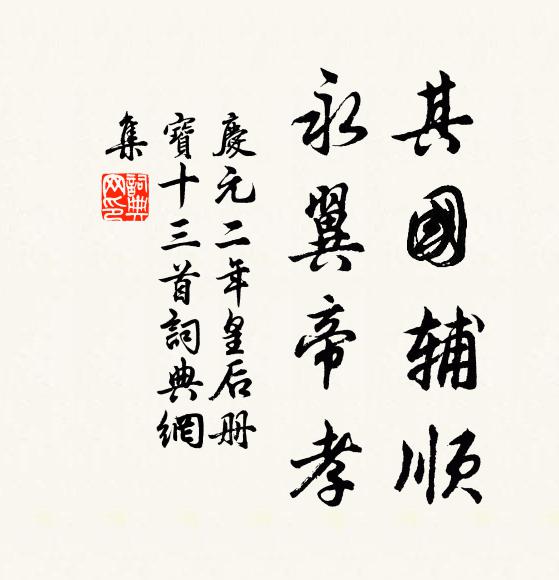 其國辅顺
永翼帝孝
慶元二年皇后册
寶十三首詞典網
集
詞典
网印